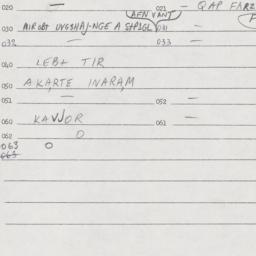 020 — 021 — QAP FARZ
AFN VANT
030 AIROBT UVGSHAJ-NGE A STPIGL 031 —
032 — 033 —
040 LEB+ TIR
050 A.KARTE INARAM
051 — 052 —
060 KAVJOR 061 —
062 O
063 O
063